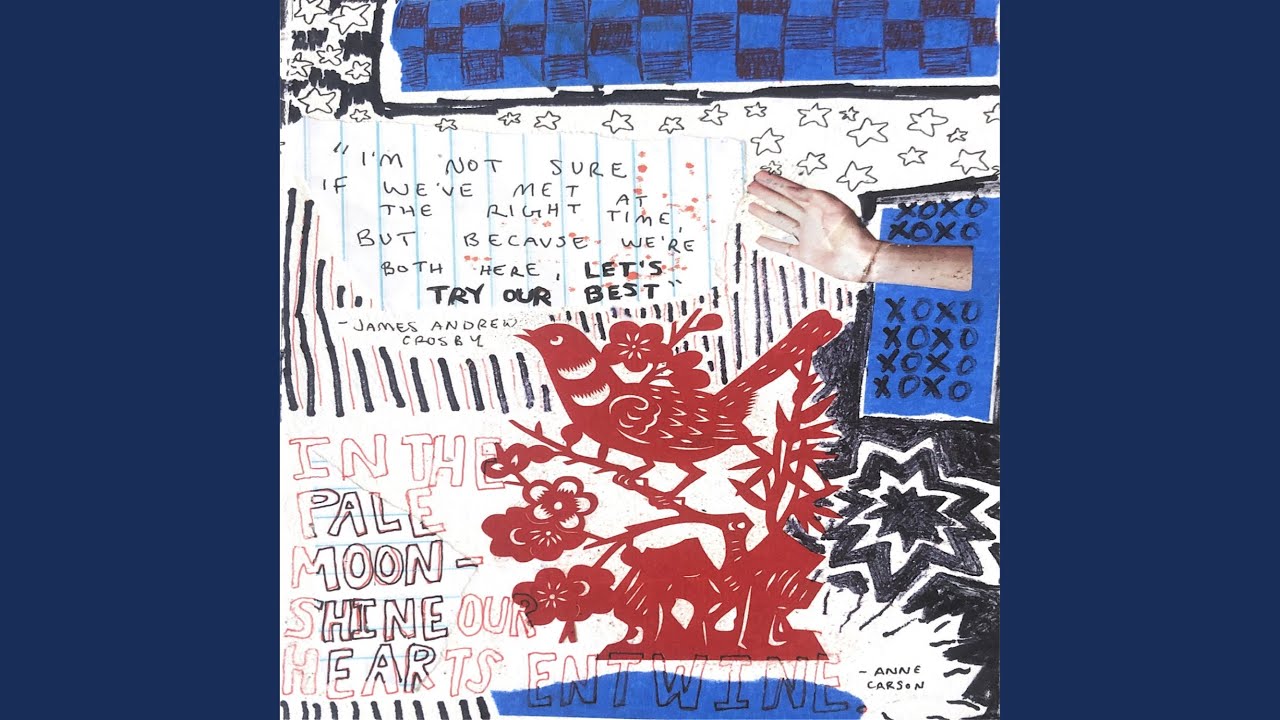 "I'M NOT SURE
IF WE'VE MET AT
THE RIGHT TIME,
BUT BECAUSE WE'RE
BOTH HERE, LET'S
TRY OUR BEST"
-JAMES ANDREW
CROSBY
XOXO
XOXO
XOXO
XOXO
XOXO
XOXO
IN THE
PALE
MOON-
SHINE OUR
HEARTS ENTWINE.
-ANNE
CARSON